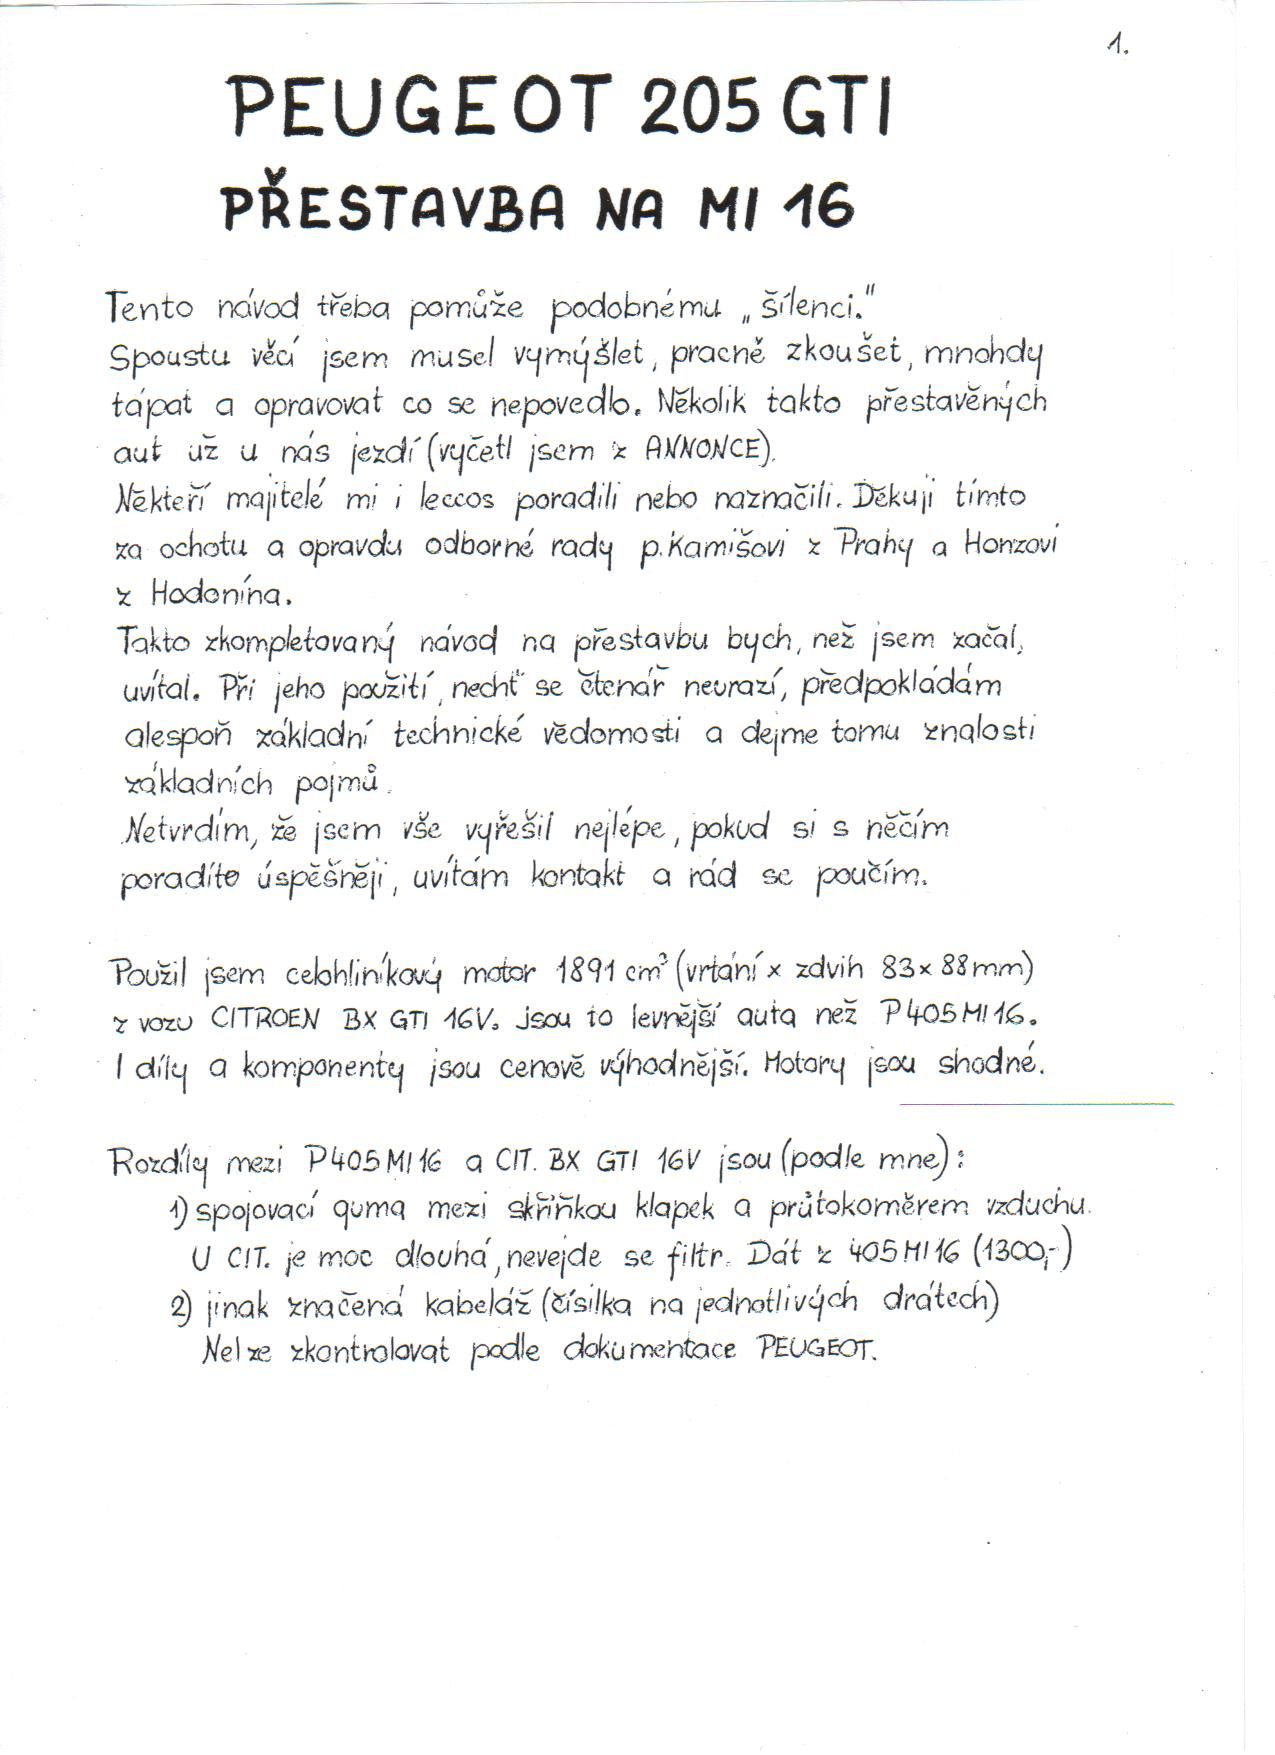 1.
PEUGEOT 205 GTI
PŘESTAVBA NA MI 16
Tento návod třeba pomůže podobnému „šílenci."
Spoustu věcí jsem musel vymýšlet, pracně zkoušet, mnohdy
tápat a opravovat co se nepovedlo. Několik takto přestavěných
aut už u nás jezdí (vyčetl jsem z ANNONCE).
Někteří majitelé mi i leccos poradili nebo naznačili. Děkuji tímto
za ochotu a opravdu odborné rady p. Kamišovi z Prahy a Honzovi
z Hodonína.
Takto zkompletovaný návod na přestavbu bych, než jsem začal,
uvítal. Při jeho použití, nechť se čtenář neurazí, předpokládám
alespoň základní technické vědomosti a dejme tomu znalosti
základních pojmů.
Netvrdím, že jsem vše vyřešil nejlépe, pokud si s něčím
poradíte úspěšněji, uvítám kontakt a rád se poučím.
Použil jsem celohliníkový motor 1891 cm³ (vrtání x zdvih 83x88mm)
z vozu CITROEN BX GTI 16V. Jsou to levnější auta než P405MI16.
I díly a komponenty jsou cenově výhodnější. Motory jsou shodné.
Rozdíly mezi P405MI16 a CIT. BX GTI 16V jsou (podle mne):
1) spojovací guma mezi skříňkou klapek a průtokoměrem vzduchu.
U CIT. je moc dlouhá, nevejde se filtr. Dát z 405MI16 (1300,-)
2) jinak značená kabeláž (čísilka na jednotlivých drátech)
Nelze zkontrolovat podle dokumentace PEUGEOT.